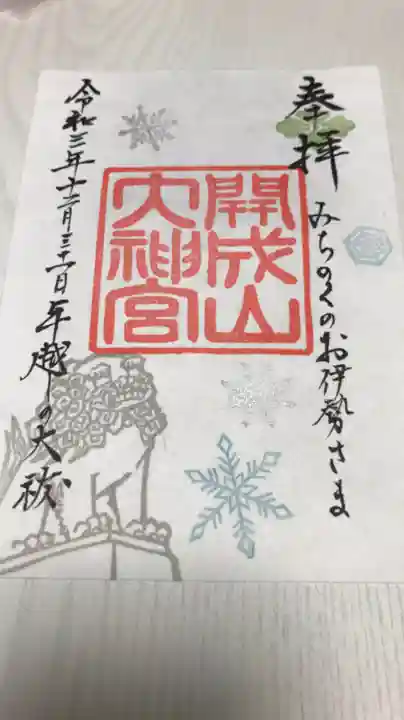 奉拝
みちのくのお伊勢さま
開成山
大神宮
令和三年十二月三十一日年越しの大祓